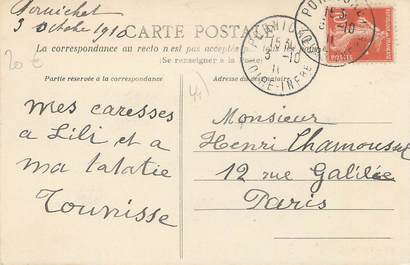 Pornichet
3 Octobre 1910
CARTE POSTALE
La correspondance au recto n'est pas acceptée
(Se renseigner à la Poste)
Partie réservée à la correspondance
Adresse du destinataire
20 €
mes caresses
a Lili et a
ma tatatie
Tounisse
Monsieur
Henri Chamousset
12 rue Galilée
Paris
LOIRE-INFRE
POSTES
10